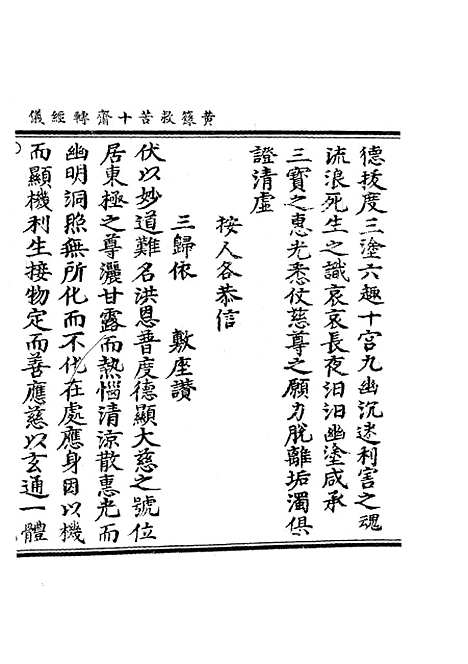 黃籙救苦十齋轉經儀
德拔度三塗六趣十宮九幽沉迷利害之魂
流浪死生之識哀哀長夜汩汩幽塗咸承
三寶之惠光悉仗慈尊之願力脫離垢濁俱
證清虛
按人各恭信
三歸依 敷座讚
伏以妙道難名洪恩普度德顯大慈之號位
居東極之尊灑甘露而熱惱清涼散惠光而
幽明洞照無所化而不化在處應身因以機
而顯機利生接物定而善應慈以玄通一體